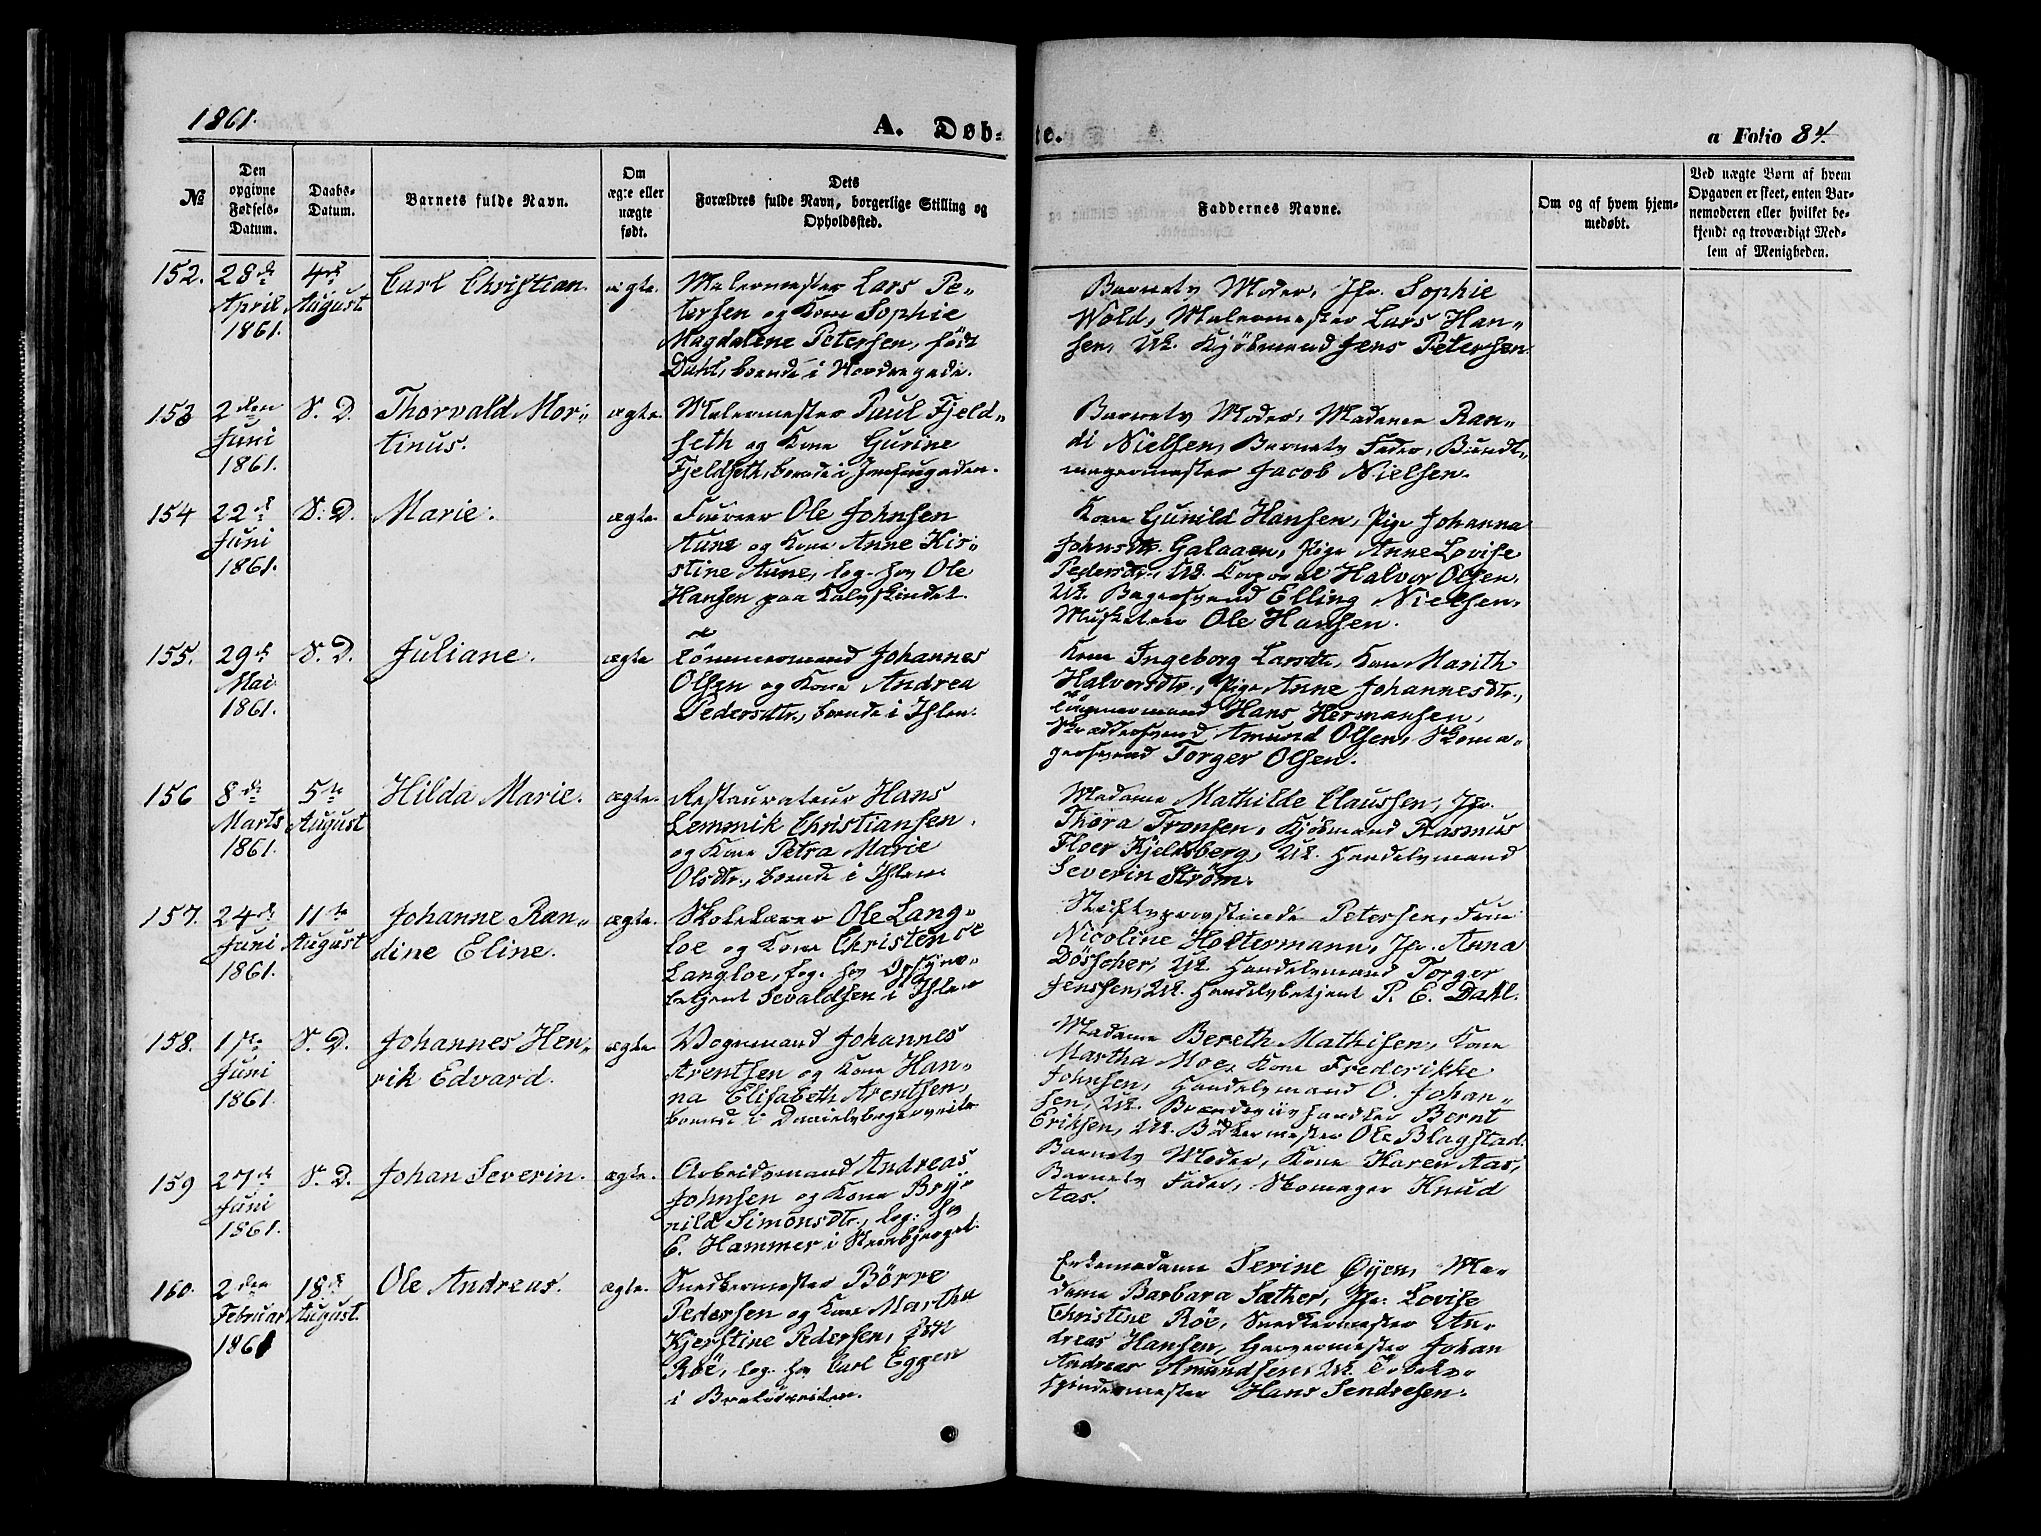 1861.
A. Døb-
te.
a Folio 84.
№
Den
opgivne
Fødsels-
Datum.
Daabs-
Datum.
Barnets fulde Navn.
Om
ægte eller
uægte
født.
Dets
Forældres fulde Navn, borgerlige Stilling og
Opholdssted.
Faddernes Navne.
Om og af hvem hjem-
medøbt.
Ved uægte Børn af hvem
Opgaven er skeet, enten Bar-
nemoderen eller hvilket be-
kjendt og troværdigt Med-
lem af Menigheden.
152.
28de
April
1861.
4de
August
Carl Christian.
ægte.
Malermester Lars Pe-
tersen og Kone Sophie
Magdalene Petersen, født
Dahl, boende i Nordregade.
Barnets Moder, Jfr. Sophie
Wold, Malermester Lars Han-
sen, Uk. Kjøbmand Jens Petersen.
153
2den
Juni
1861.
S. D.
Thorvald Mor-
tinus.
ægte.
Malermester Paul Fjeld-
seth og Kone Gurine
Fjeldseth, boende i
Barnets Moder, Madame Ran-
di Nielsen, Barnets Fader, Bundt-
magermester Jacob Nielsen.
154
22de
Juni
1861.
S. D.
Marie.
ægte
Fureer Ole Johnsen
Aune og Kone Anne Kir-
stine Aune, log. hos Ole
Hansen paa Kalvskindet.
Kone Gunild Hansen, Pige Johanna
Johnsdtr. Galaaen, Pige Anne Lovise
Pedersdtr., Uk. Corporal Halvor Olsen,
Uk. Bagersvend Elling Nielsen,
Musketeer Ole Hansen.
155.
29de
Mai
1861.
S. D.
Juliane.
ægte
Tömmermand Johannes
Olsen og Kone Andrea
Pedersdtr., boende i Ihlen.
Kone Ingeborg Larsdtr, Kone Marith
Halvorsdtr., Pige Anne Johannesdtr.,
Tömmermand Hans Hermansen,
Skræddersvend Amund Olsen, Skoma-
gersvend Torger Olsen.
156
8de
Marts
1861.
5te
August
Hilda Marie.
ægte.
Restaurateur Hans
Lemmik Christiansen
og Kone Petra Marie
Olsdtr., boende i Ihlen.
Madame Mathilde Claussen, Jfr.
Thora Tronsen, Kjöbmand Rasmus
Floer Kjeldsberg, Uk. Handelsmand
Severin Ström.
157.
24de
Juni
1861.
11te
August
Johanne Ran-
dine Eline.
ægte.
Skolelærer Ole Lang-
loe og Kone Christence
Langloe, log. hos Opsyns-
betjent Sevaldsen i Ihlen
Stiftsprovstinde Petersen, Frue
Nicoline Holtermann, Jfr. Anna
Döscher, Uk. Handelsmand Torger
Jenssen, Uk. Handelsbetjent P. E. Dahl.
158.
1ste
Juni
1861.
S. D.
Johannes Hen-
rik Edvard.
ægte
Vognmand Johannes
Arentsen og Kone Han-
na Elisabeth Arentsen,
boende i Danielsbagerveite
Madame Bereth Mathisen, Kone
Martha Moe, Kone Frederikke
Johnsen, Handelsmand O. Johan-
sen, Uk. Brændeviinshandler Bernt
Eriksen, Uk. Bödkermester Ole Blagstad.
159
27de
Juni
1861.
S. D.
Johan Severin.
ægte.
Arbeidsmand Andreas
Johnsen og Kone Bryn-
nild Simonsdtr., log: hos
E. Hammer i Steenbjerget.
Barnets Moder, Kone Karen Aas,
Barnets Fader, Skomager Knud
Aas.
160.
2den
Februar
1861
18de
August.
Ole Andreas.
ægte.
Snedkermester Börre
Pedersen og Kone Martha
Kjerstine Pedersen, født
Röe, log. hos Carl Eggen
i
Enkemadame Serine Øyen, Ma-
dame Barbara Sæther, Jfr. Lovise
Christine Röe, Snedkermester An-
dreas Hansen, Garvermester Johan
Andreas Amundsen, Uk. Tobaks-
spindermester Hans Sendresen.